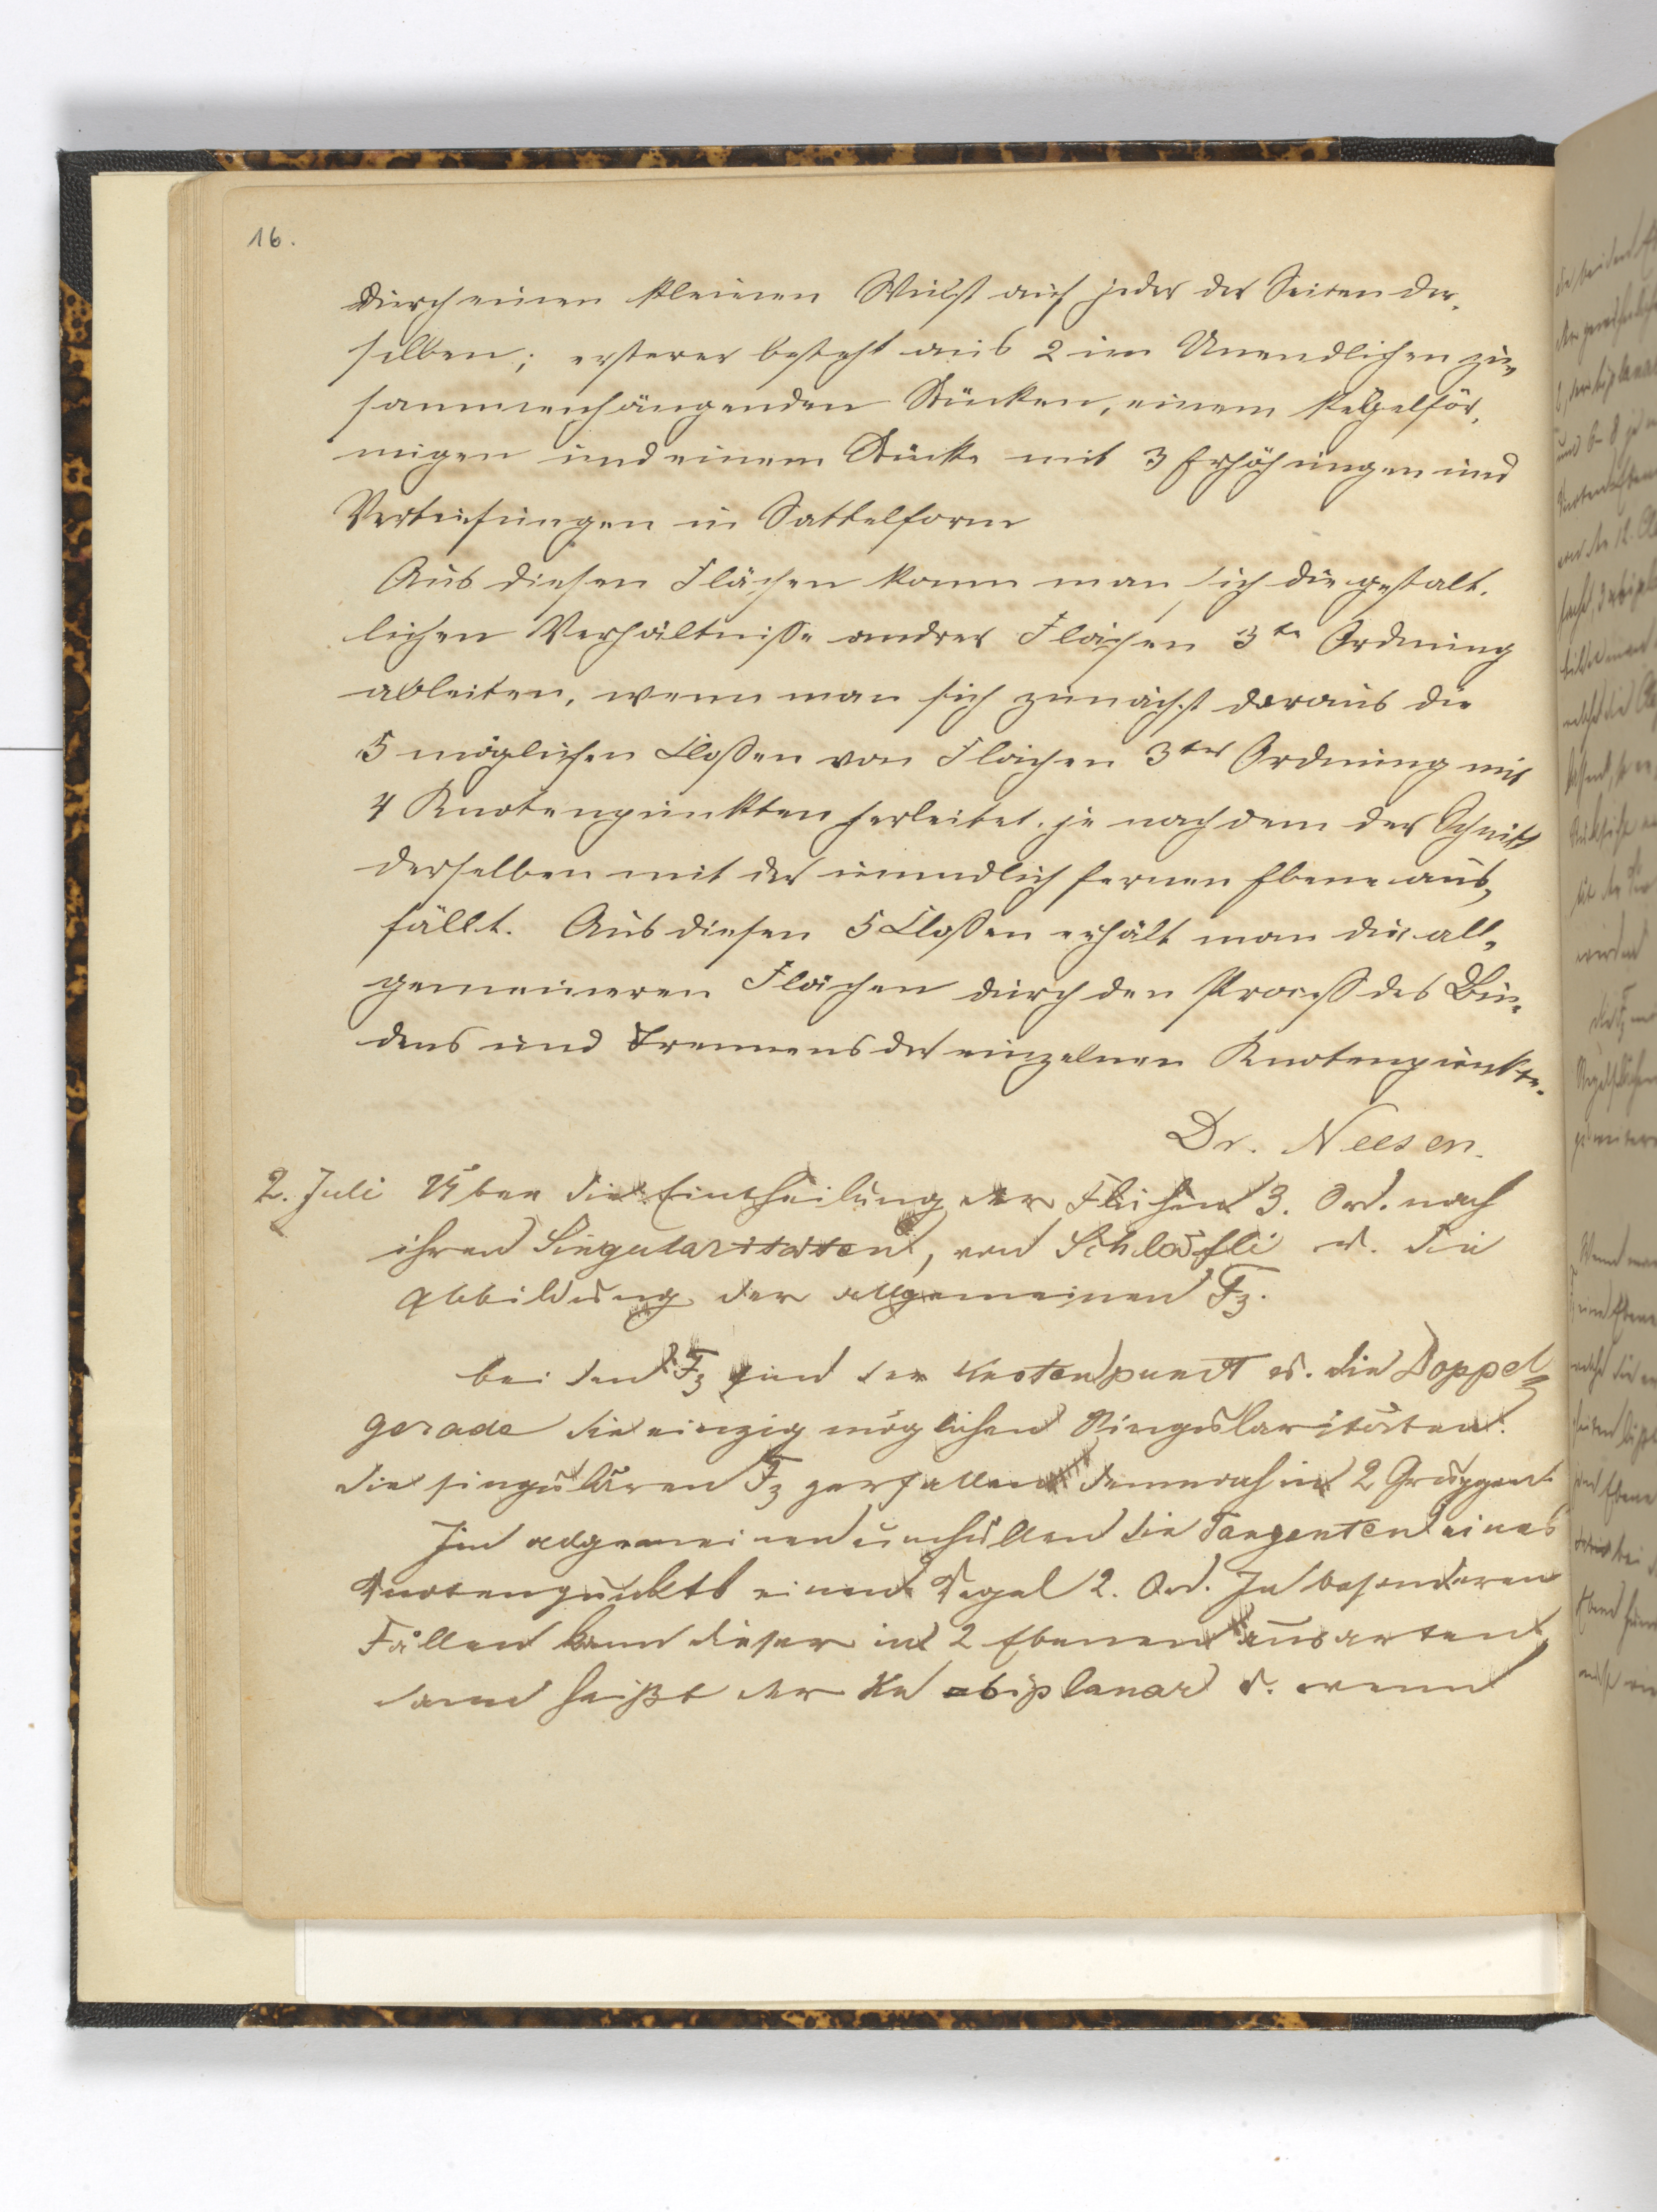 16.
durch einen kleinen Wulst auf jeder der Seiten der-
selben; ersterer besteht aus 2 im Unendlichen zu-
sammenhängenden Stücken, einem kegelför-
migen und einem Stücke mit 3 Erhöhungen und
Vertiefungen in Sattelform
Aus diesen Flächen kann man sich die gestalt-
lichen Verhältniße andrer Flächen 3te Ordnung
ableiten, wenn man sich zunächst daraus die
5 möglichen Claßen von Flächen 3ter Ordnung mit
4 Knotenpunkten herleitet. je nachdem der Schnitt
derselben mit der unendlich fernen Ebene aus-
fällt. Aus diesen 5 Claßen erhält man die all-
gemeineren Flächen durch den Proceß des Bin-
dens und Trennens der einzelnen Knotenpunkte.
Dr. Neesen.
2. Juli Über die Eintheilung der Flächen 3. Ord. nach
ihren Singularitäten, von Schläfli u. die
Abbildung der allgemeinen F3.
bei den F3 sind der Knotenpunct u. die Doppel-
gerade die einzig möglichen Singularitäten.
die singulären F3 zerfallen demnach in 2 Gruppen.
Im allgemeinen umhüllen die Tangenten eines
Knotenpunkts einen Kegel 2. Ord. In besonderen
Fällen kann dieser in 2 Ebenen ausarten,
dann heißt der Kn biplanar u. wenn